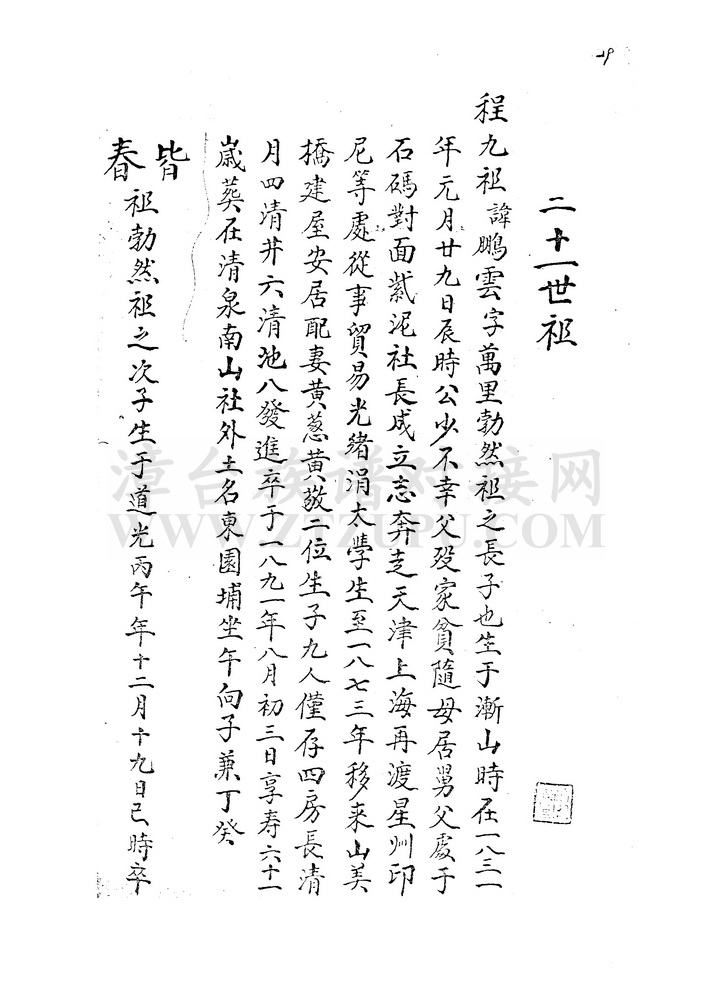 29
二十一世祖
程九祖諱鵬雲字萬里勃然祖之長子也生于漸山時在一八三一
年元月廿九日辰時公少不幸父歿家貧隨母居舅父處于
石碼對面紫泥社長成立志奔走天津上海再渡星州印
尼等處從事貿易光緒涓太學生至一八七三年移來山美
橋建屋安居配妻黃蔥黃敬二位生子九人僅存四房長清
月四清井六清池八發進卒于一八九一年八月初三日享寿六十一
歲葬在清泉南山社外土名東園埔坐午向子兼丁癸
皆春祖勃然祖之次子生于道光丙午年十二月十九日巳時卒
漳台族谱对接网
WWW.ZTZUPU.COM